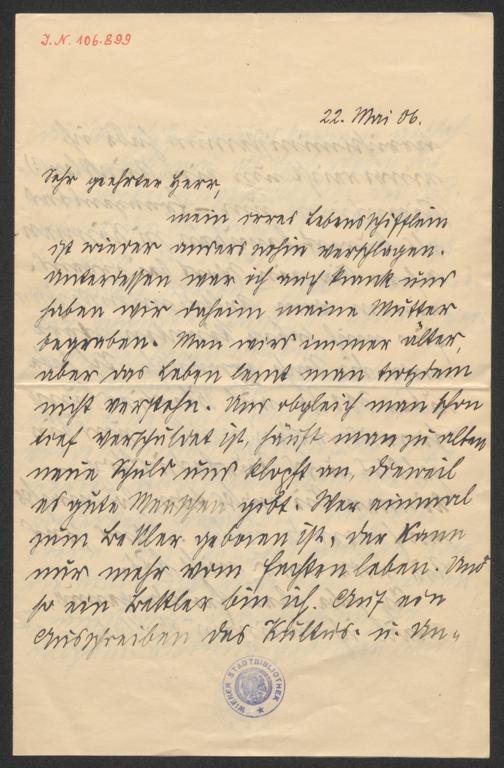 J.N. 106.899
22. Mai 06.
Sehr geehrter Herr,
mein irres Lebensschifflein
ist wieder anderswohin verschlagen.
Unterdessen war ich auch krank und
haben wir daheim meine Mutter
begraben. Man wird immer älter,
aber das Leben lernt man trotzdem
nicht verstehn. Und obgleich man schon
tief verschuldet ist, häuft man zu alten
neue Schuld und klopft an, dieweil
es gute Menschen gibt. Wer einmal
zum Bettler geboren ist, der kann
nur mehr vom Fechten leben. Und
so ein Bettler bin ich. Auf ein
Ausschreiben des Kultus- u. Un-
WIENER STADTBIBLIOTHEK